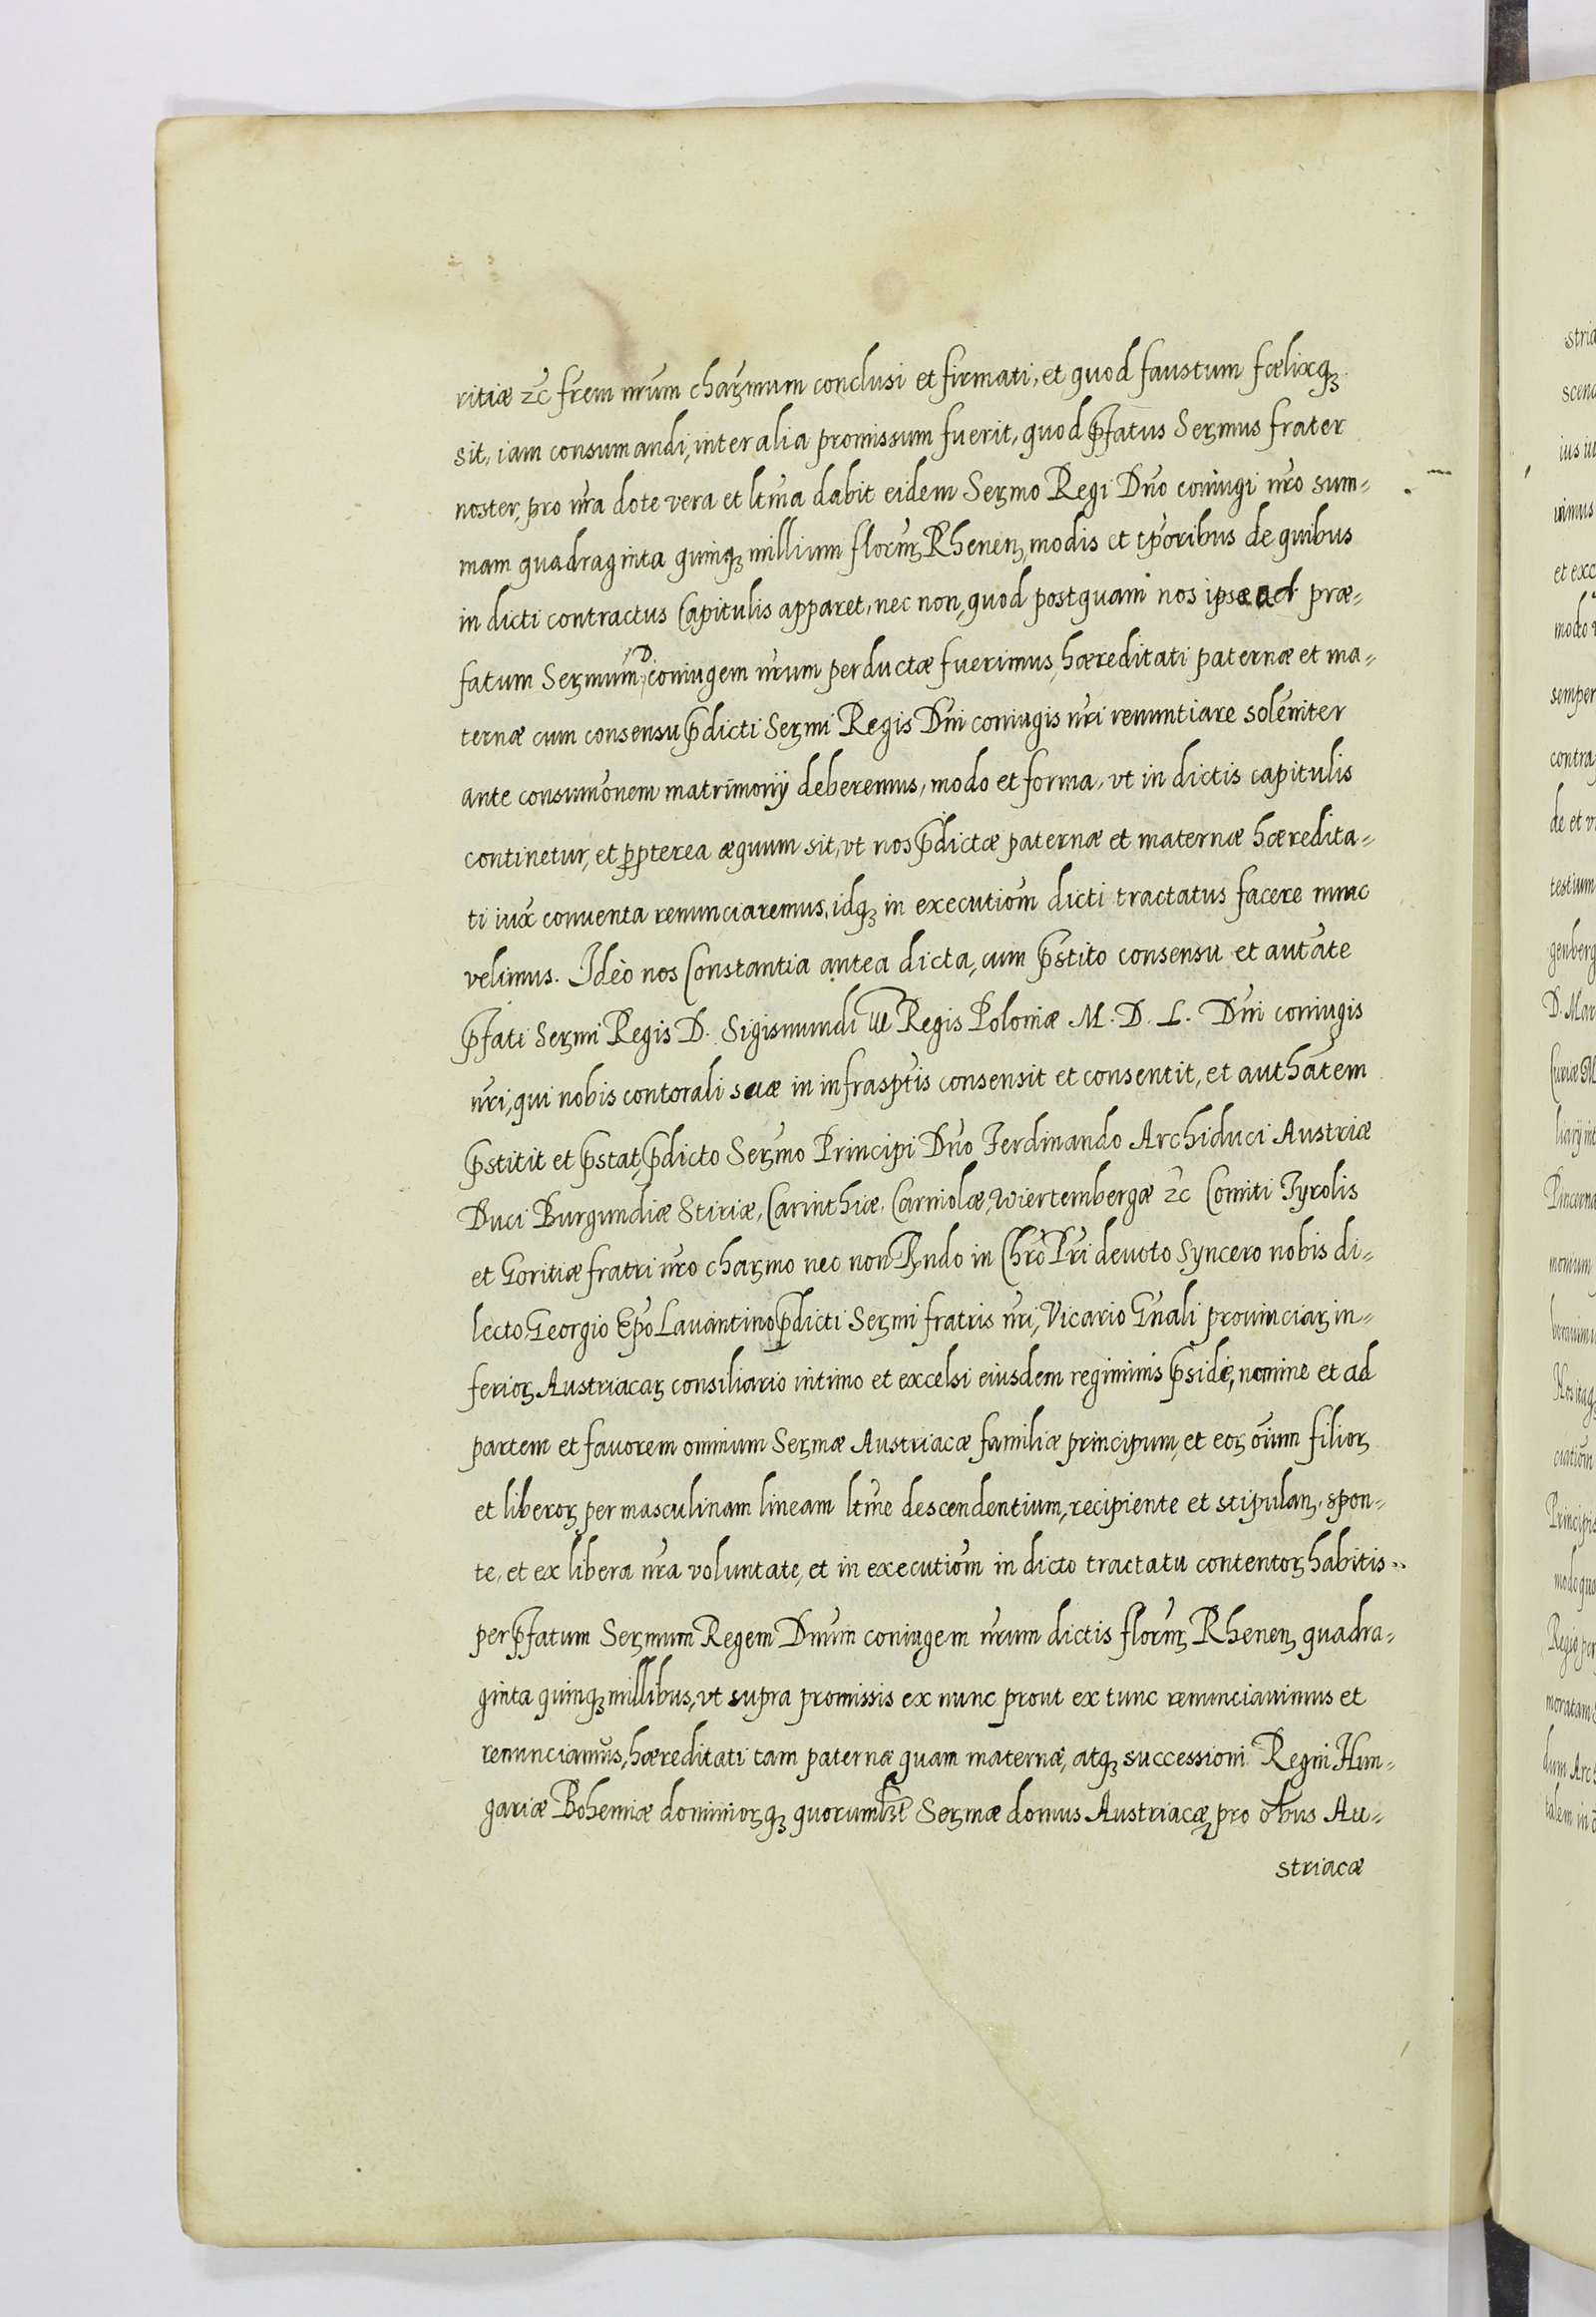 ritiæ ꝛc̄ frēm nr̄um chaꝝmum conclusi et firmati, et quod faustum fœlixqꝫ
sit, iam consumandi, inter alia promissum fuerit, quod p̄fatus Seꝝmus frater
noster, pro nr̄a dote vera et ltm̄a dabit eidem Seꝝmo Regi Dn̄o coniugi nr̄o sum=
mam quadraginta quinqꝫ millium florn̄ꝝ Rhenenꝫ, modis et tp̄oribus de quibus
in dicti contractus Capitulis apparet, nec non, quod postquam nos ipsæ ad præ=
fatum Seꝝmum D coniugem nr̄um perductæ fuerimus, hæreditati paternæ et ma=
ternæ cum consensu p̄dicti Seꝝmi Regis Dn̄i coniugis nr̄i renuntiare solēniter
ante consumōnem matrimonij deberemus, modo et forma, vt in dictis capitulis
continetur, et ꝓpterea æquum sit, vt nos p̄dictæ paternæ et maternæ hæredita=
ti iux̄ conuenta renunciaremus, idqꝫ in executiōm dicti tractatus facere nunc
velimus. Ideò nos Constantia antea dicta, cum p̄stito consensu et autāte
p̄fati Seꝝmi Regis D. Sigismundi III Regis Poloniæ M. D. L. Dn̄i coniugis
nr̄i, qui nobis contorali suæ in infrasp̄tis consensit et consentit, et authātem
p̄stitit et p̄stat, p̄dicto Seꝝmo Principi Dn̄o Ferdinando Archiduci Austriæ
Duci Burgundiæ Stiriæ, Carinthiæ, Carniolæ, Wiertembergæ ꝛc̄ Comiti Tyrolis
et Goritiæ fratri nr̄o chaꝝmo nec non Rꝫndo in Chr̄o Pr̄i deuoto syncero nobis di=
lecto Georgio Ep̄o Lauantino p̄dicti Seꝝmi fratris nr̄i, Vicario Gn̄ali prouinciaꝝ in=
ferioꝝ Austriacaꝝ consiliario intimo et excelsi eiusdem regiminis p̄side, nomine et ad
partem et fauorem omnium Seꝝmæ Austriacæ familiæ principum, et eoꝝ oīum filioꝝ
et liberoꝝ per masculinam lineam ltm̄e descendentium, recipiente et stipulanꝫ, spon=
te, et ex libera nr̄a voluntate, et in executiōm in dicto tractatu contentoꝝ habitis
per p̄fatum Seꝝmum Regem Dn̄um coniugem nr̄um dictis florn̄ꝝ Rhenenꝫ quadra=
ginta quinqꝫ millibus, vt supra promissis ex nunc prout ex tunc renunciauimus et
renunciamus, hæreditati tam paternæ quam maternæ, atqꝫ successioni Regni Hun=
gariæ Bohemiæ dominioꝝqꝫ quorumlibet Seꝝmæ domus Austriacæ, pro oībus Au=
striacæ